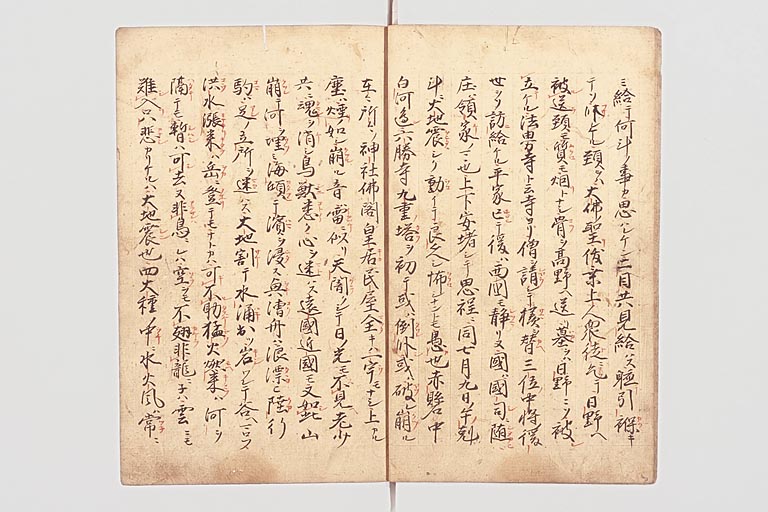 ミ給テ何斗ノ事カ思ハレケン二目共見給ハス軈引襁キ
テソ臥ケル頸ヲハ大佛聖俊乗上人衆徒乞テ日野へ
被送頸モ質モ烟トナシ骨ヲハ髙野ヘ送墓ヲハ日野ニソ被
立ケル法界寺ト云寺ヨリ僧請テ様ヲ替三位中将後
世ヲソ訪給ケル平家亡テ後ハ西囯モ静リヌ國ハ國司ニ随
庄ハ領家ノ〻也上下安堵シテ思程ニ同七月九日午剋
斗ニ大地震シク動イテ良久怖ナントモ愚也赤縣中
白河邉六勝寺九重塔ヲ初テ或ハ倒レ或ハ破レ崩ル
在〻所〻ノ神社佛閣皇居民屋全キハ一宇モナシ上ル
塵ハ煙ノ如シ崩ル音ハ雷ニ似リ天闇シテ日ノ光モ不見老少
共ニ魂ヲ消シ鳥獣悉ク心ヲ迷ハス遠國近國モ又如此山
崩テ河ヲ埋ミ海傾テ濱ヲ浸ス奥漕舟ハ浪ニ漂ヒ陸行
駒ハ足ノ立所ヲ迷ハス大地割テ水涌出ツ岩ワレテ谷ヘコロフ
洪水漲来ハ岳ニ登テモナトカハ可不助猛火燃来ハ河ヲ
隔テモ暫ハ可去又非鳥ニハ空ヲモ不翅非龍ニテハ雲ニモ
難入只悲カリケルハ大地震也四大種ノ中ニ水火風ハ常ニ